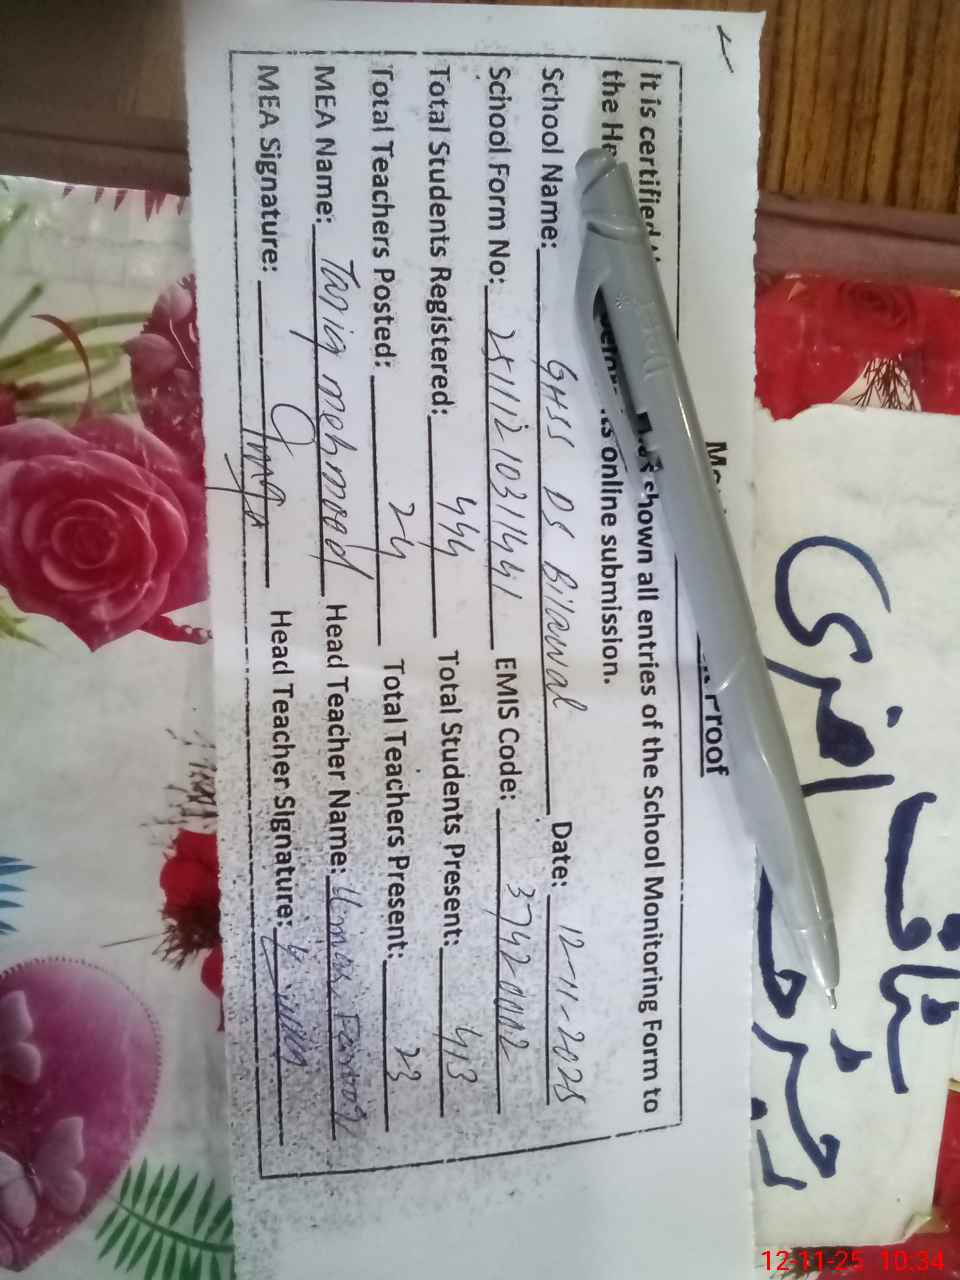 Proof
It is certified shown all entries of the School Monitoring Form to
the online submission.
School Name: GHSS DS Bilawal Date: 12-11-2025
School Form No: 251112103114441 EMIS Code: 37420002
Total Students Registered: 444 Total Students Present: 413
Total Teachers Posted: 24 Total Teachers Present: 23
MEA Name: Tariq mehmood Head Teacher Name: Umar Farooq
MEA Signature: Head Teacher Signature:
12-11-25 10:34